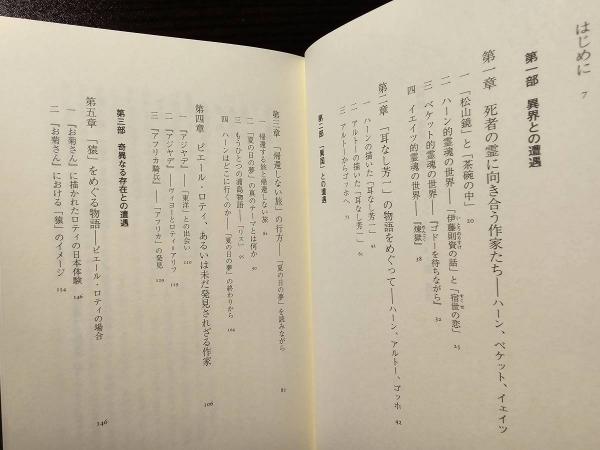 はじめに 7
第一部 異界との遭遇
第一章 死者の霊に向き合う作家たち——ハーン、ベケット、イェイツ
一 「松山鏡」と「茶碗の中」 20
二 ハーン的霊魂の世界——「伊藤則資の話」と「宿世の恋」 25
三 ベケット的霊魂の世界——『ゴドーを待ちながら』 32
四 イェイツ的霊魂の世界——『煉獄』 38
第二章 「耳なし芳一」の物語をめぐって——ハーン、アルトー、ゴッホ 42
一 ハーンの描いた「耳なし芳一」 42
二 アルトーの描いた「耳なし芳一」
三 アルトーからゴッホへ
第二部 「東国」との遭遇
第三章 「帰還しない旅」の行方——「夏の日の夢」を読みながら 82
一 帰還する旅と帰還しない旅 82
二 「夏の日の夢」の真のテーマとは何か
三 もうひとつの浦島物語——「リス」 96
四 ハーンはどこに行くのか——「夏の日の夢」の終わりから 104
第四章 ピエール・ロティ、あるいは未だ発見されざる作家 106
一 『アジヤデ』——「東洋」との出会い
二 『アジヤデ』——ヴィヨーとロティ＝アリフ
三 『アフリカ騎兵』——「アフリカ」の発見
第三部 奇異なる存在との遭遇
第五章 「猿」をめぐる物語——ピエール・ロティの場合 146
一 『お菊さん』に描かれたロティの日本体験 146
二 『お菊さん』における「猿」のイメージ 154